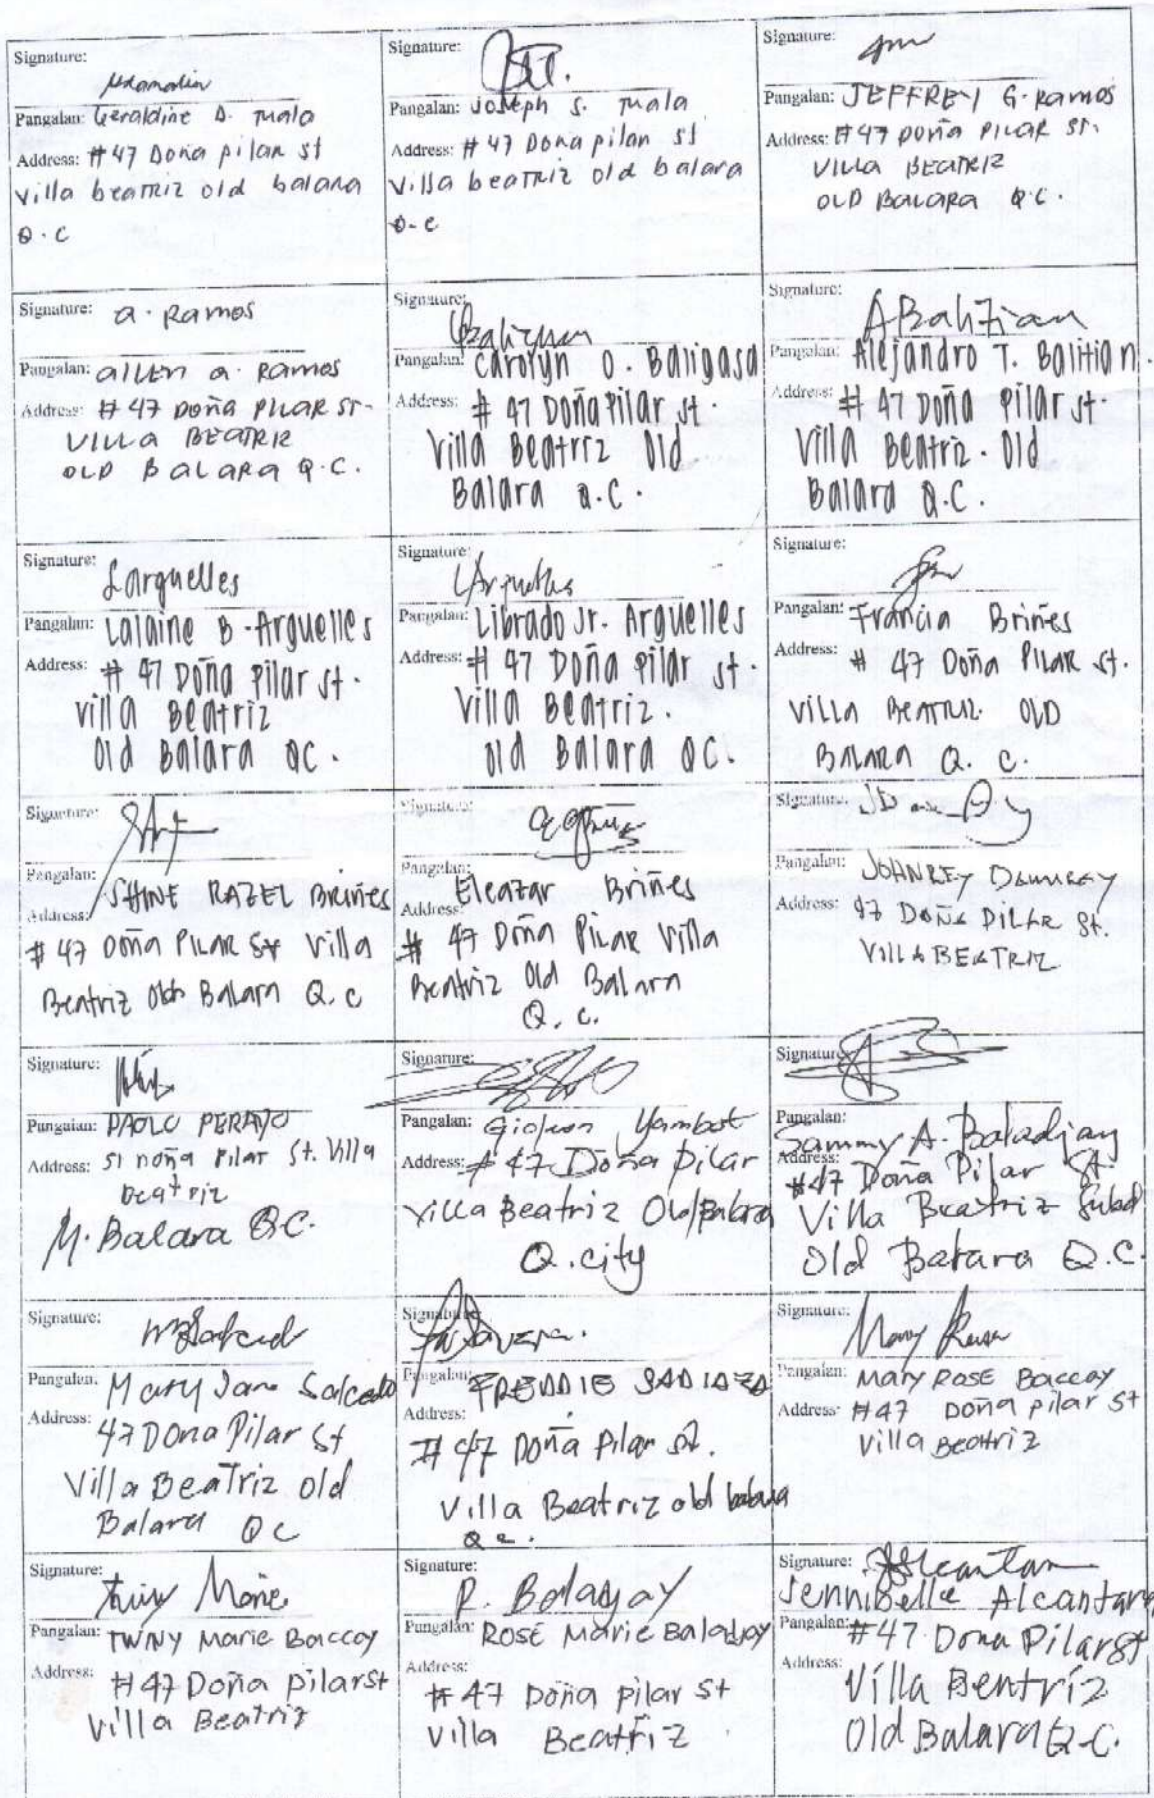 Signature:
Pangalan: Geraldine D. Mala
Address: #47 Doña pilar st
villa beatriz old balara
Q.C
Signature:
Pangalan: Joseph S. Mala
Address: #47 Dona pilar st
villa beatriz old balara
Q.C
Signature:
Pangalan: JEFFREY G. Ramos
Address: #47 DOÑA PILAR ST.
VILLA BEATRIZ
OLD BALARA Q.C.
Signature: a. Ramos
Pangalan: allen a. Ramos
Address: #47 DOÑA PILAR ST.
VILLA BEATRIZ
OLD BALARA Q.C.
Signature:
Pangalan: Carolyn O. Baligasa
Address: #47 Doña Pilar st.
Villa Beatriz Old
Balara Q.C.
Signature: ABalitian
Pangalan: Alejandro T. Balitian.
Address: #47 Doña Pilar st.
Villa Beatriz. Old
Balara Q.C.
Signature: Larguelles
Pangalan: Lalaine B. Arguelles
Address: #47 Doña Pilar st.
Villa Beatriz
Old Balara QC.
Signature: LArguelles
Pangalan: Librado Jr. Arguelles
Address: #47 Doña Pilar st.
Villa Beatriz.
Old Balara QC.
Signature:
Pangalan: Francia Briñes
Address: #47 Doña PILAR st.
VILLA BEATRIZ OLD
BALARA Q. C.
Signature:
Pangalan: SHINE RAZEL Briñes
Address:
#47 Doña PILAR St Villa
Beatriz Old Balara Q.C
Signature:
Pangalan: Eleazar Briñes
Address:
#47 Doña PILAR Villa
Beatriz Old Balara
Q.C.
Signature:
Pangalan: JOHNREY
Address: 47 DOÑA PILAR St.
VILLA BEATRIZ
Signature:
Pangalan: PAOLO
Address: 51 Doña Pilar St. Villa
Beatriz
M. Balara Q.C.
Signature:
Pangalan: Gideon Yambot
Address: #47 Doña Pilar
Villa Beatriz Old Balara
Q.city
Signature:
Pangalan:
Sammy A. Baladjay
Address:
#47 Doña Pilar St.
Villa Beatriz Subd
Old Balara Q.C.
Signature: MSalced
Pangalan: Mary Jane Salcedo
Address:
47 Dona Pilar St
Villa Beatriz old
Balara QC
Signature:
Pangalan: FREDDIE
Address:
#47 Doña Pilar St.
Villa Beatriz old balara
Q.C.
Signature: Mary Rose
Pangalan: Mary ROSE Baccay
Address: #47 Doña pilar St
Villa Beatriz
Signature: Twiny Marie
Pangalan: TWINY Marie Baccay
Address: #47 Doña pilar St
Villa Beatriz
Signature: R. Baladjay
Pangalan: ROSE Marie Baladjay
Address:
#47 Doña pilar St
Villa Beatriz
Signature: Alcantara
Jennibelle Alcantara
Pangalan: #47 Dona Pilar St
Address: Villa Beatriz
Old Balara Q.C.